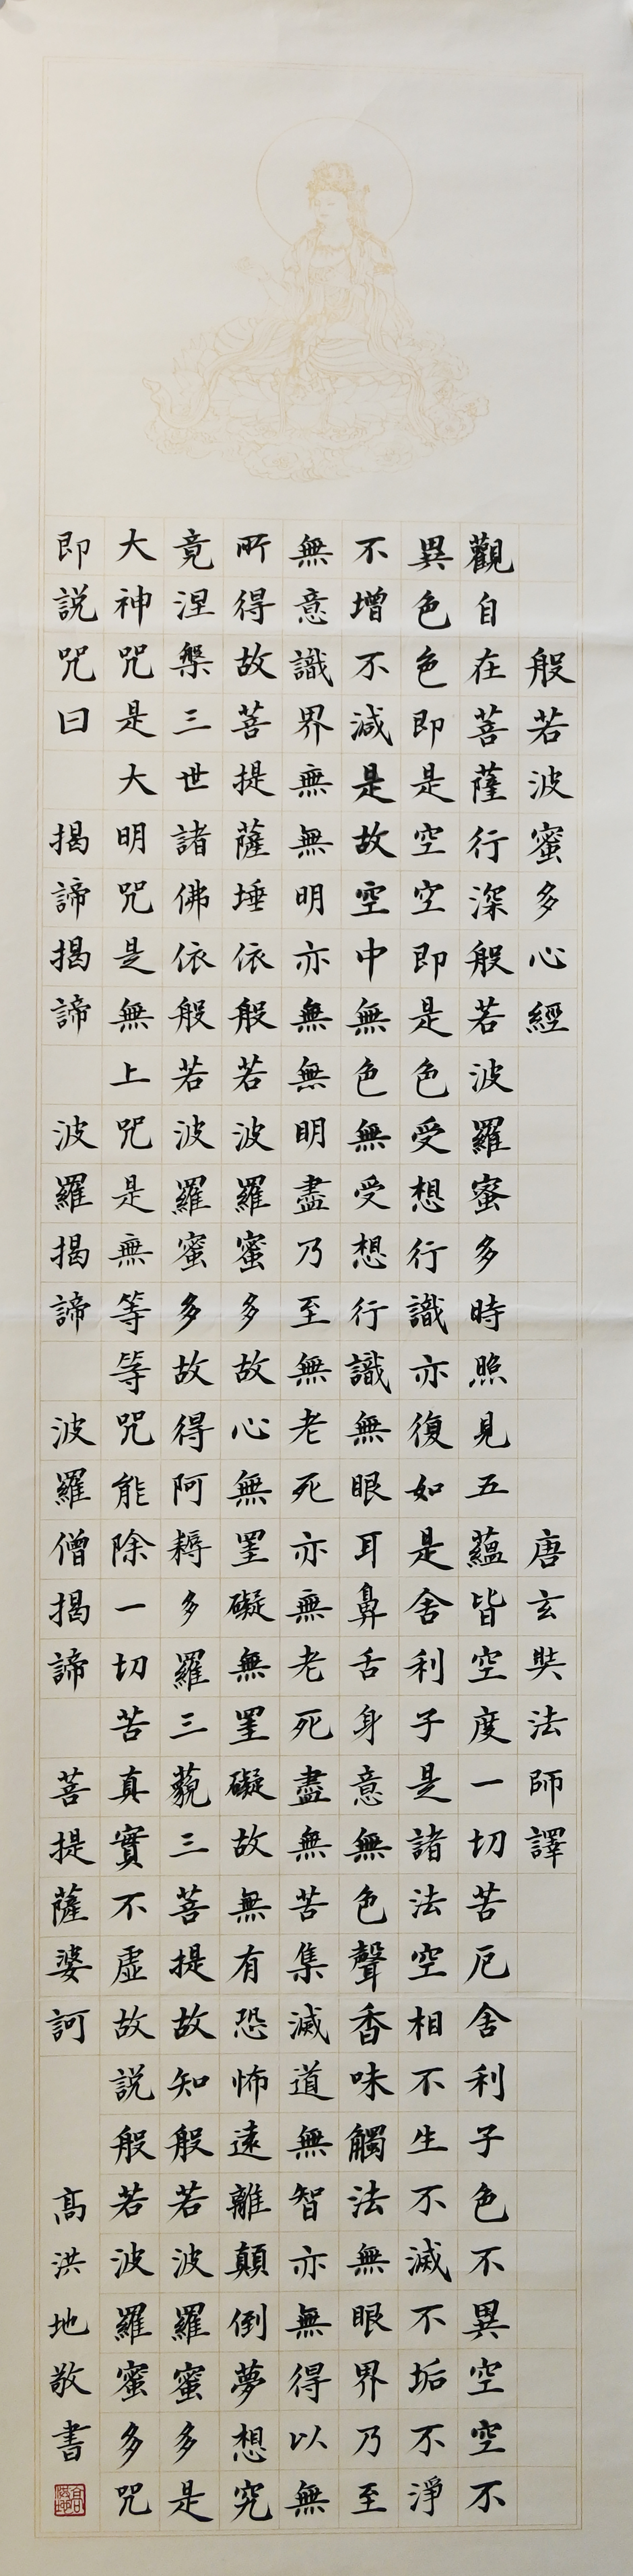 般若波蜜多心經 唐玄奘法師譯
觀自在菩薩行深般若波羅蜜多時照見五蘊皆空度一切苦厄舍利子色不異空空不
異色色即是空空即是色受想行識亦復如是舍利子是諸法空相不生不滅不垢不淨
不增不減是故空中無色無受想行識無眼耳鼻舌身意無色聲香味觸法無眼界乃至
無意識界無無明亦無無明盡乃至無老死亦無老死盡無苦集滅道無智亦無得以無
所得故菩提薩埵依般若波羅蜜多故心無罣礙無罣礙故無有恐怖遠離顛倒夢想究
竟涅槃三世諸佛依般若波羅蜜多故得阿耨多羅三藐三菩提故知般若波羅蜜多是
大神咒是大明咒是無上咒是無等等咒能除一切苦真實不虛故説般若波羅蜜多咒
即説咒曰 揭諦揭諦 波羅揭諦 波羅僧揭諦 菩提薩婆訶 髙洪地敬書